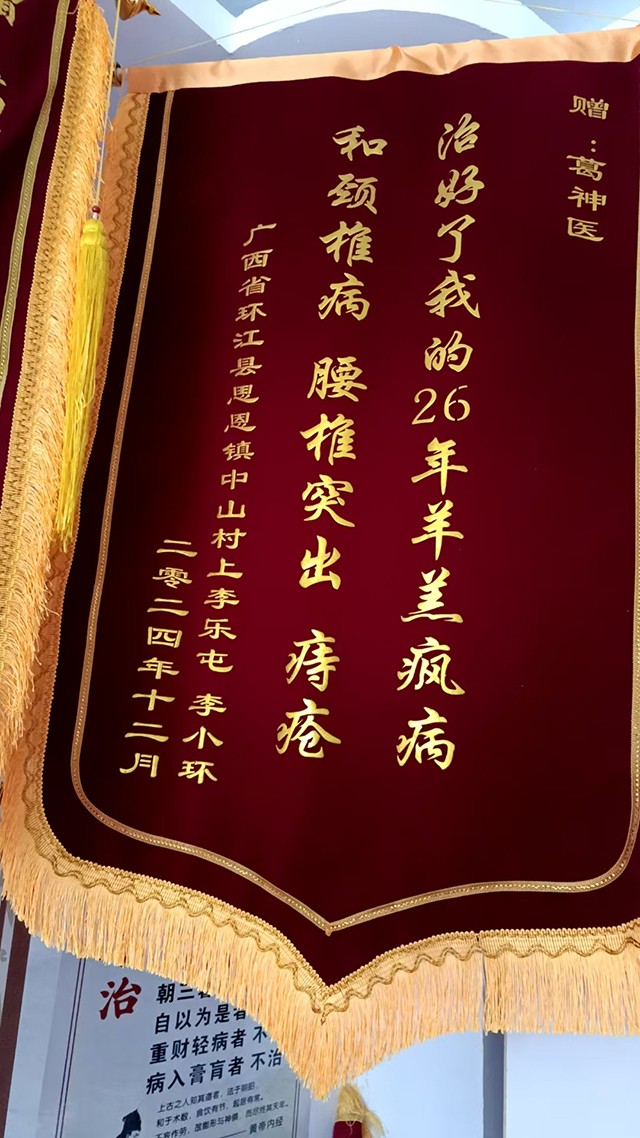 赠：葛神医
治好了我的26年羊羔疯病
和颈椎病 腰椎突出 痔疮
广西省环江县思恩镇中山村上李乐屯 李小环
二零二四年十二月
治
朝三
自以为是者
重财轻病者 不
病入膏肓者 不治
上古之人知其道者，法于阴阳，
和于术数，食饮有节，起居有常，
不妄作劳，故能形与神俱，而尽终其天年。
——黄帝内经